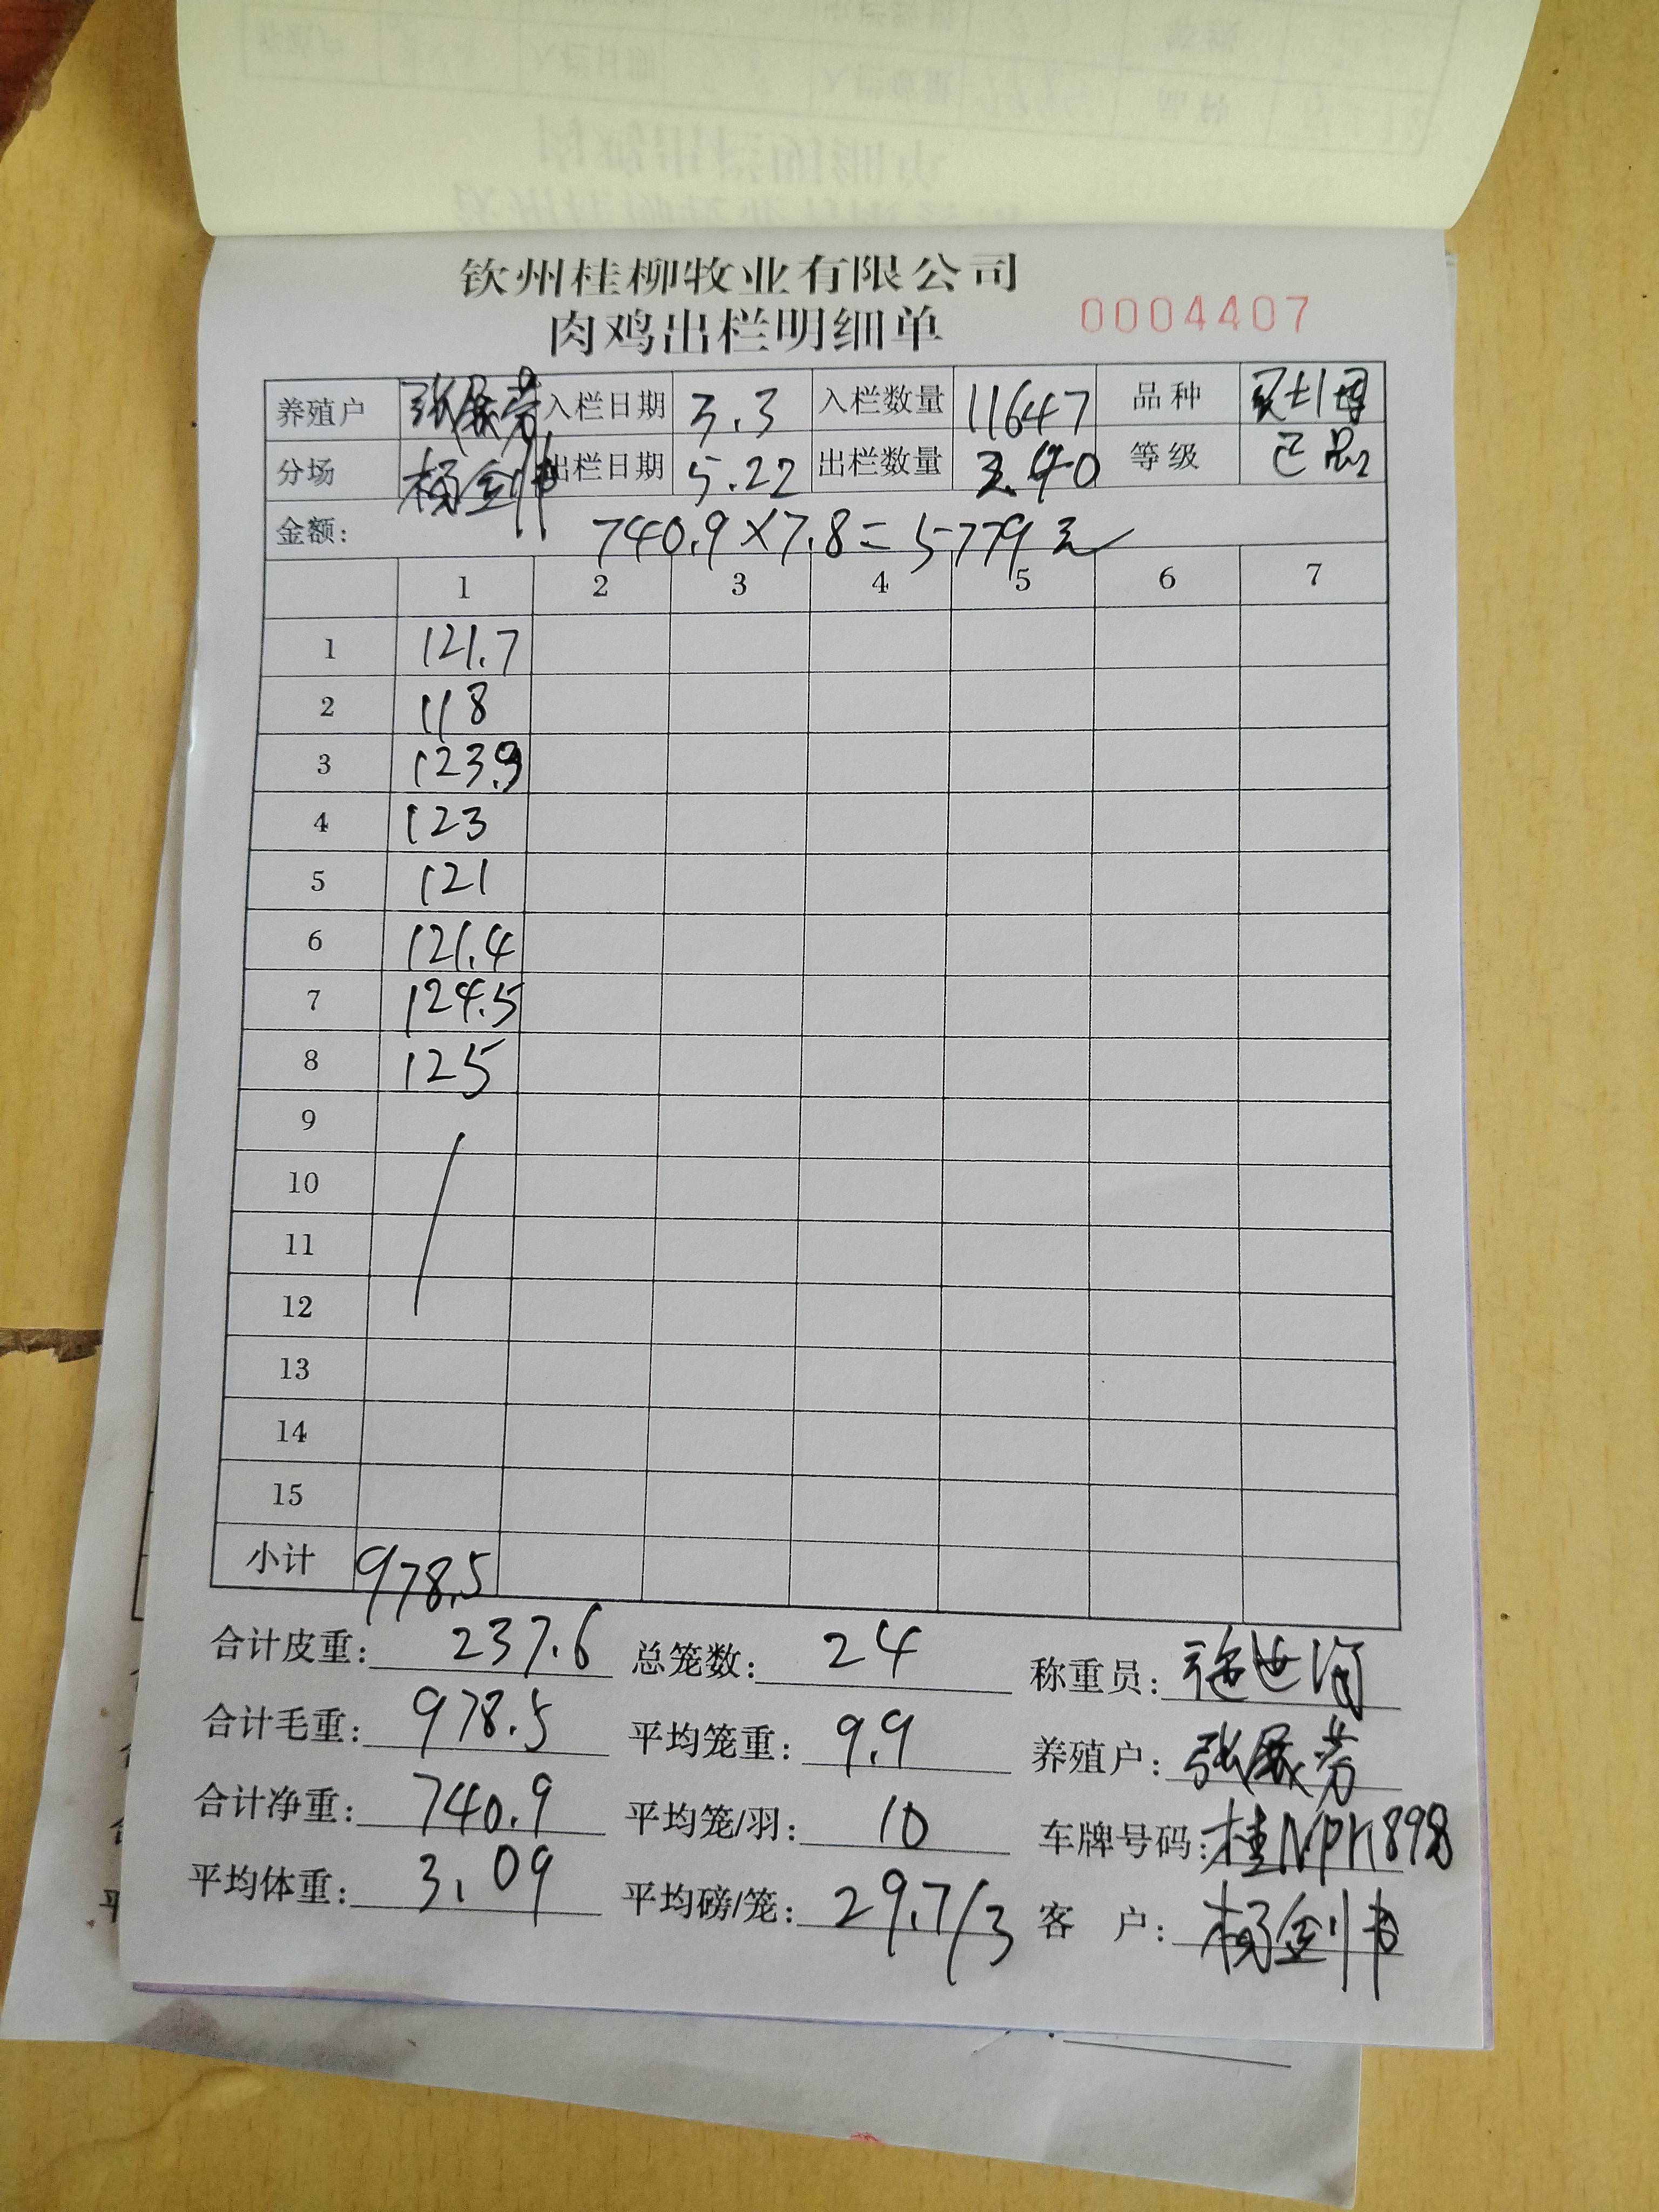 钦州桂柳牧业有限公司
肉鸡出栏明细单 0004407
养殖户 张展芳 入栏日期 3.3 入栏数量 11647 品种
分场 杨剑 出栏日期 5.22 出栏数量 240 等级 品
金额: 740.9×7.8=5779元
1 2 3 4 5 6 7
1 121.7
2 118
3 123.9
4 123
5 121
6 121.4
7 124.5
8 125
9
10
11
12
13
14
15
小计 978.5
合计皮重: 237.6 总笼数: 24 称重员:
合计毛重: 978.5 平均笼重: 9.9 养殖户: 张展芳
合计净重: 740.9 平均笼/羽: 10 车牌号码: 桂NPK898
平均体重: 3.09 平均磅/笼: 29.7/3 客 户: 杨剑